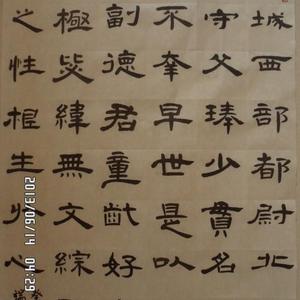 城西部都尉北
守父琫少貫名
不幸早世是以
副德君童齔好
極毖緯無文綜
之性根生於心
2013/06/14 04:29